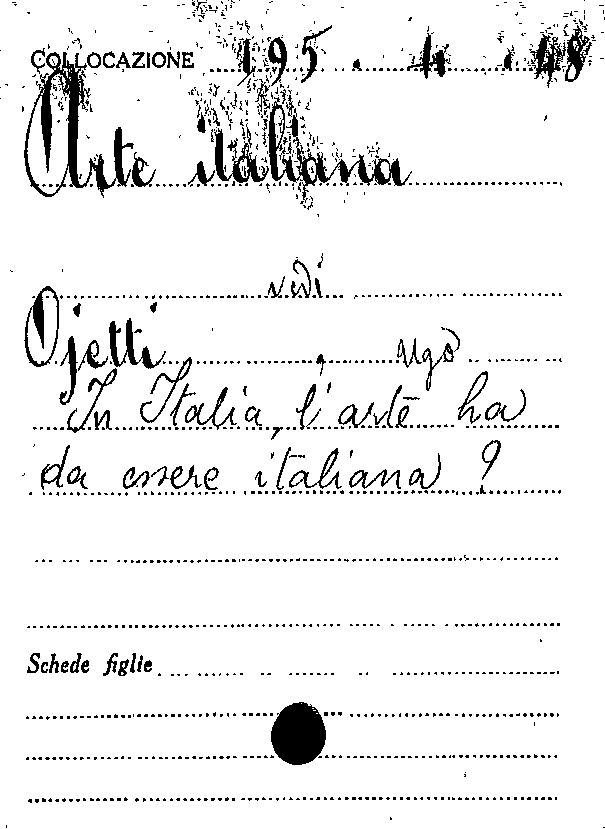 COLLOCAZIONE 195. 4. 48
Arte italiana
vedi
Ojetti, Ugo
In Italia, l'arte ha
da essere italiana?
Schede figlie